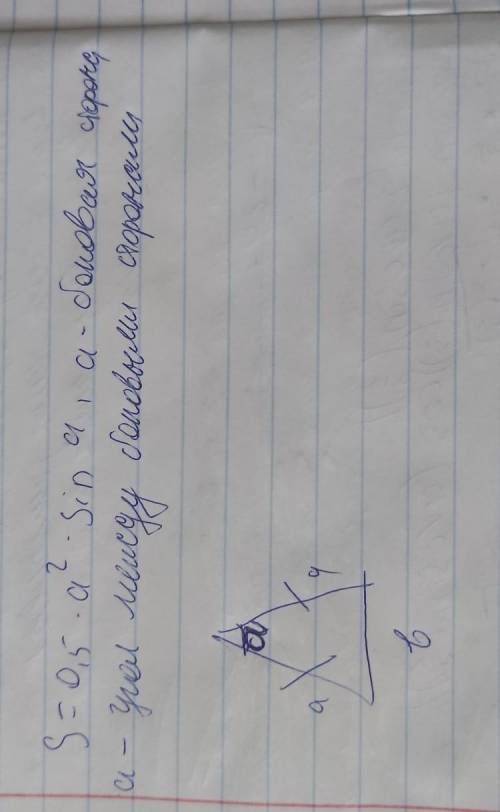 S = 0,5 · a² · sin α, a - боковая сторона
α - угол между боковыми сторонами
α
a
a
b